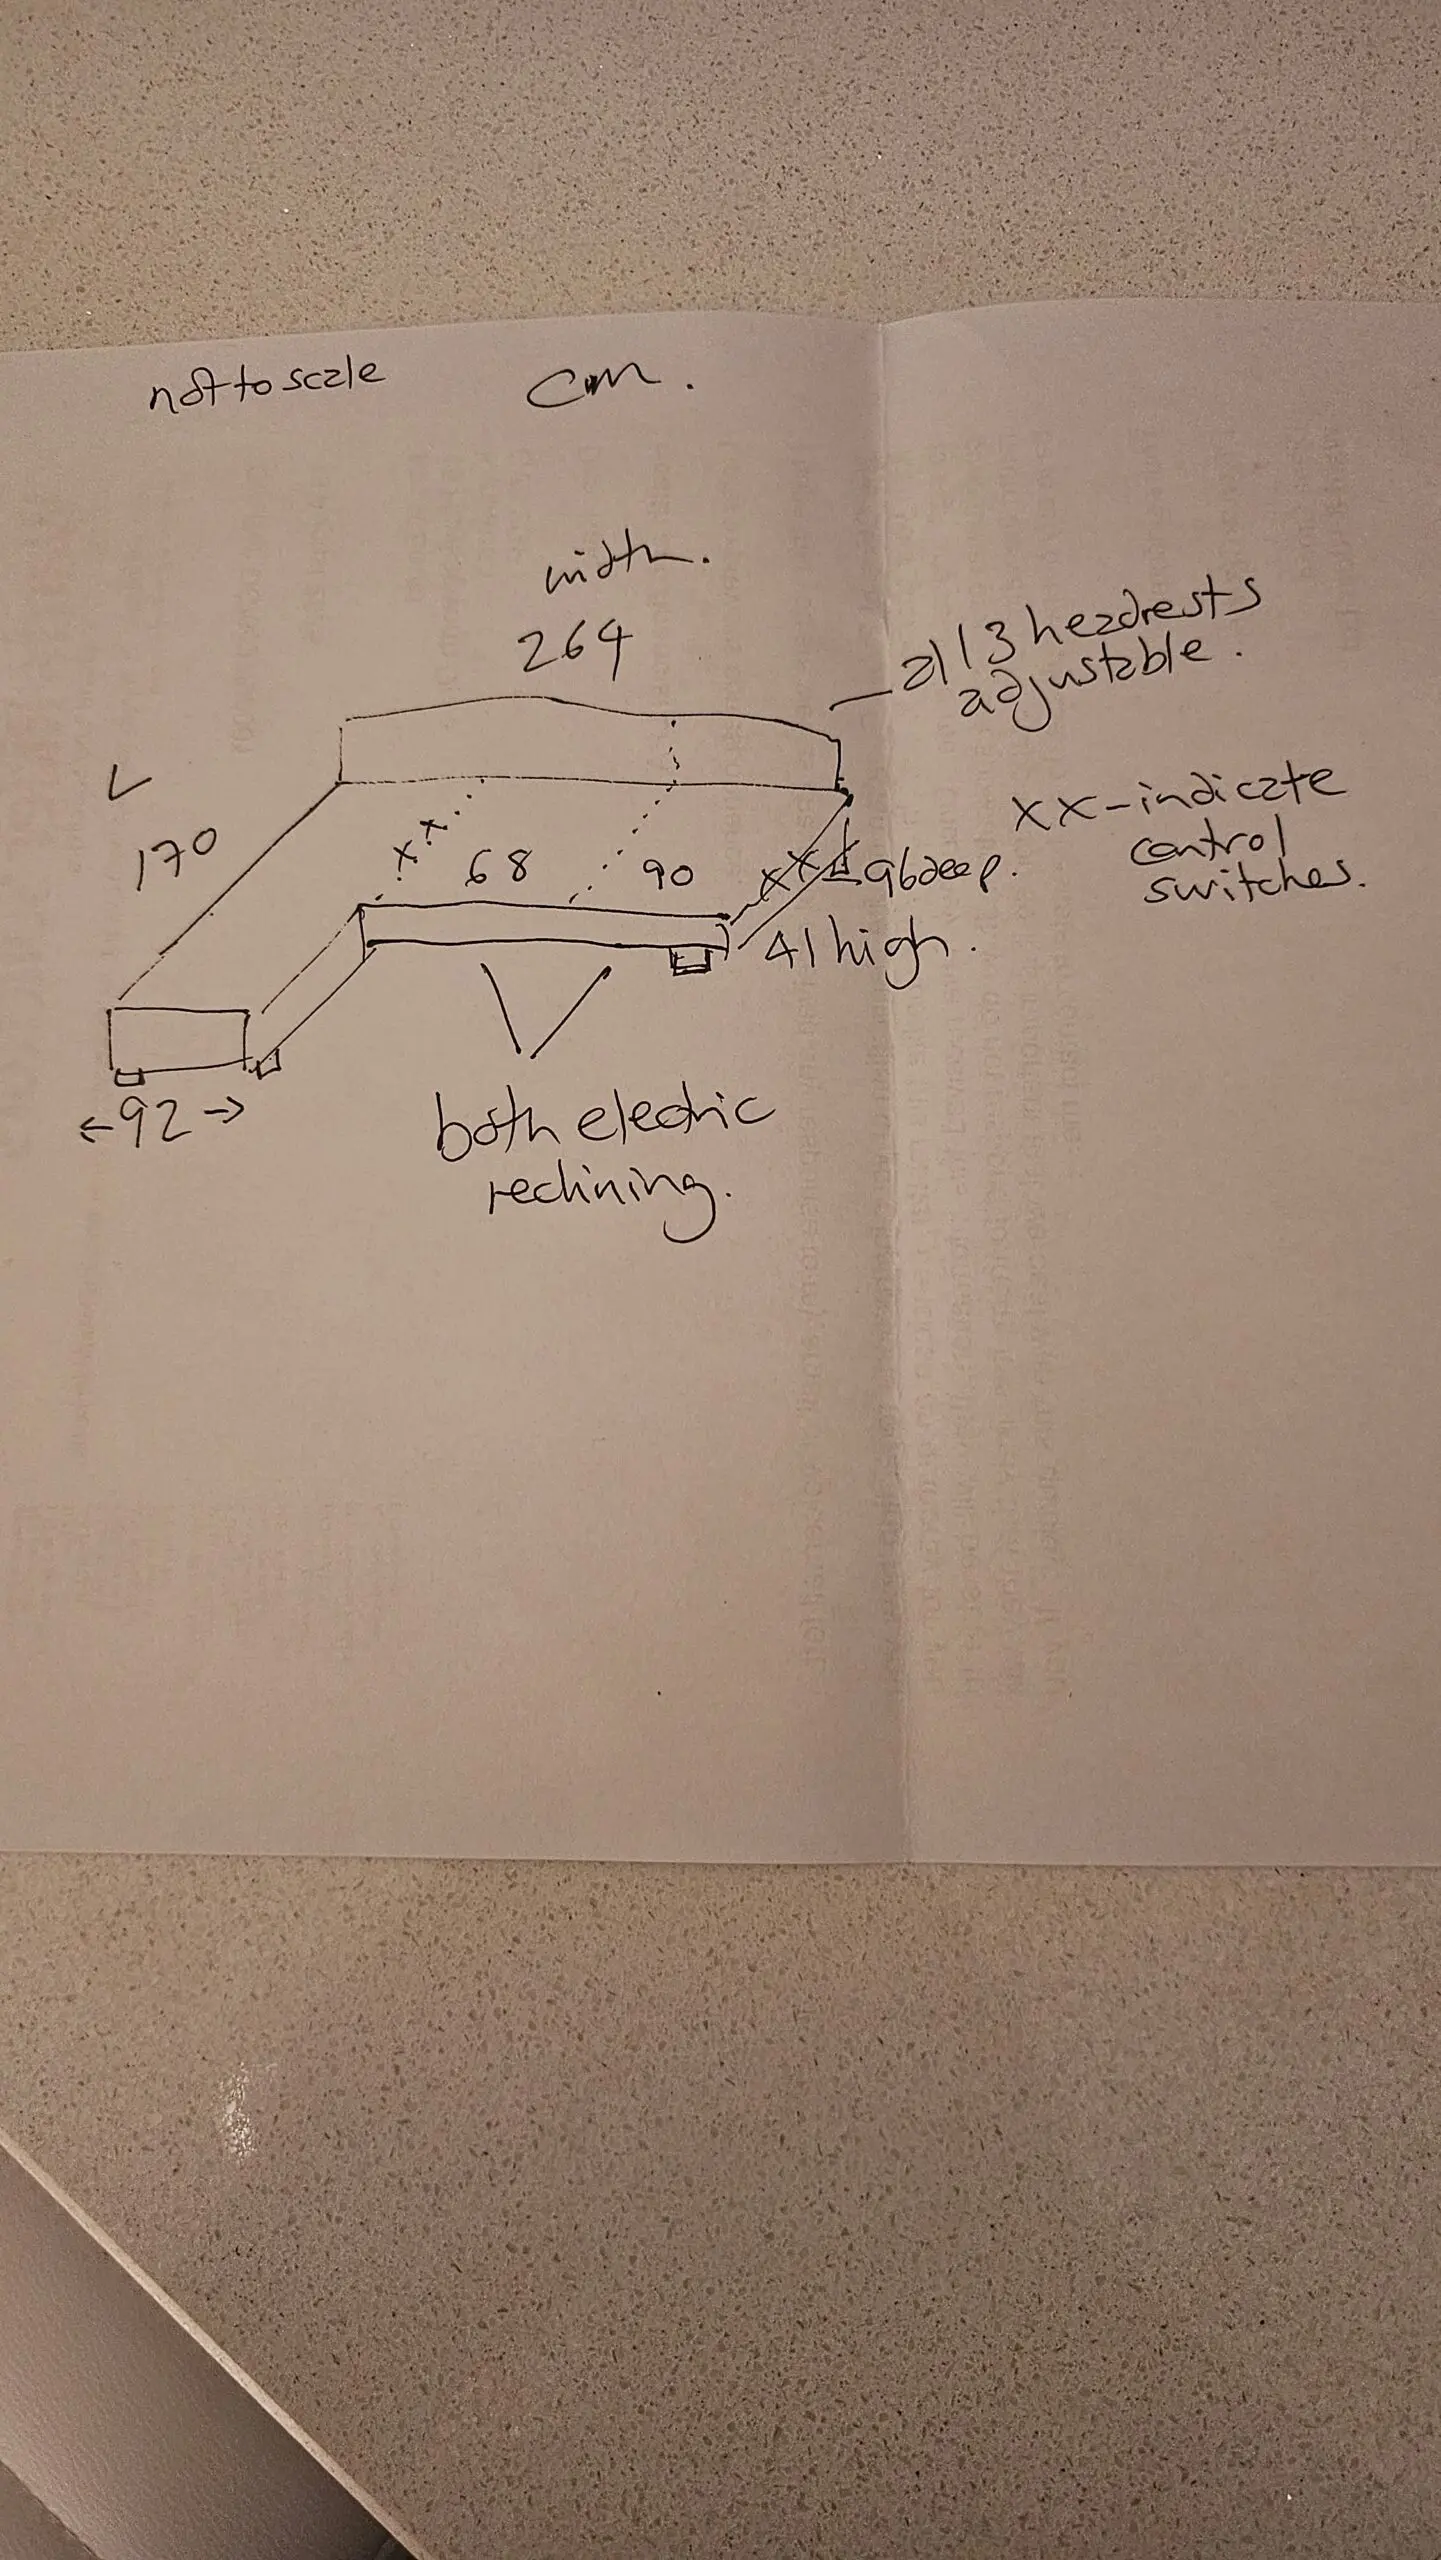 not to scale
cm.
width.
264
all 3 headrests
adjustable.
L
170
xx - indicate
control
switches.
xx
68
90
xx
96 deep.
41 high.
← 92 →
both electric
reclining.